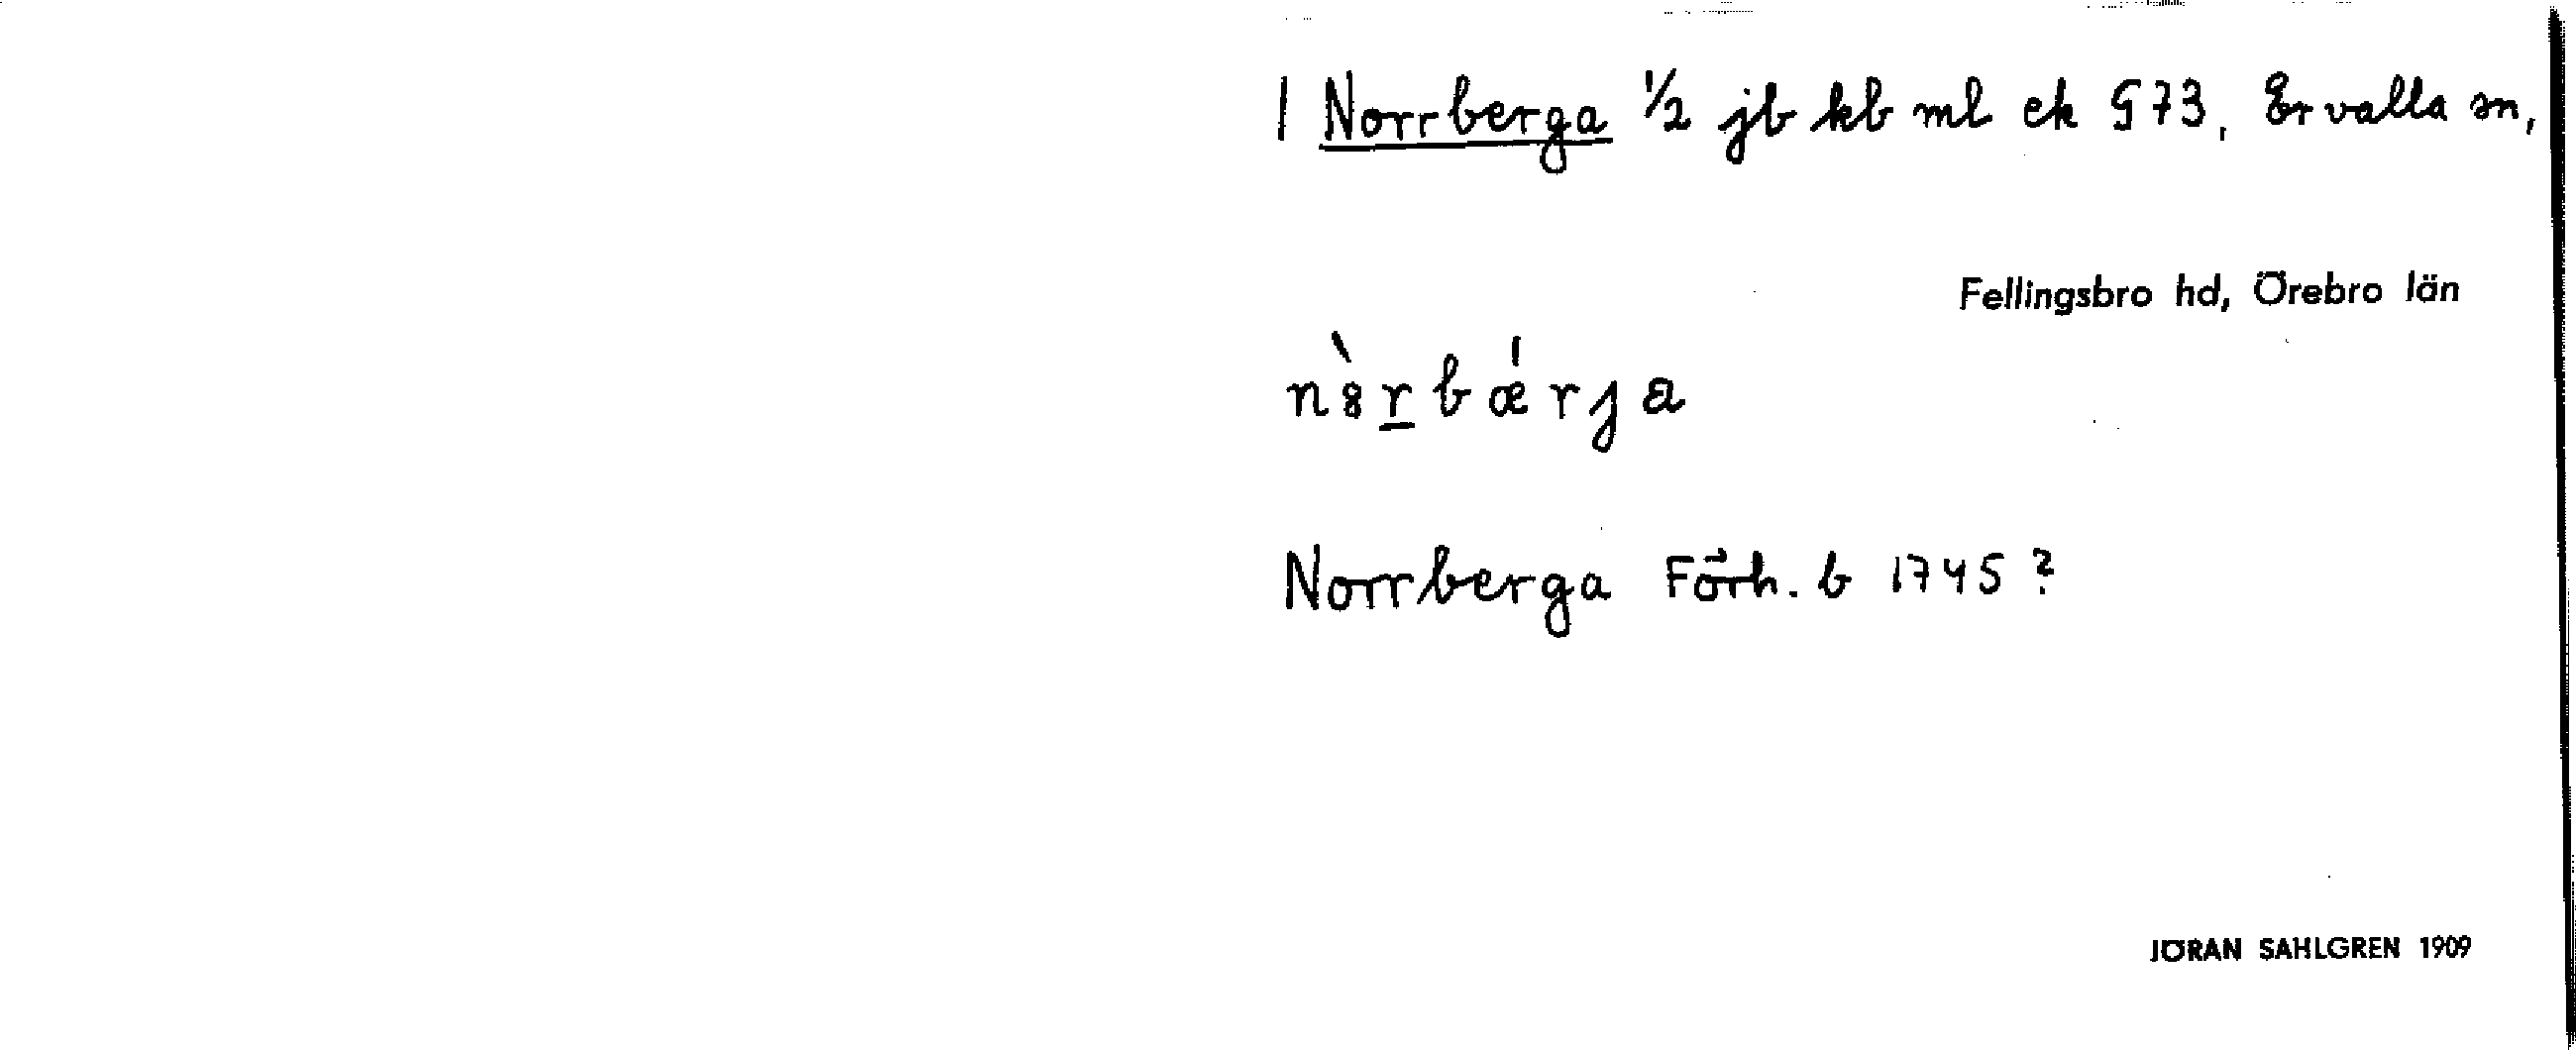 1 Norrberga ½ jb kb ml ek G73, Ervalla sn,
Fellingsbro hd, Örebro län
n8̀rbǽrja
Norrberga Förh. b 1745 ?
JÖRAN SAHLGREN 1909